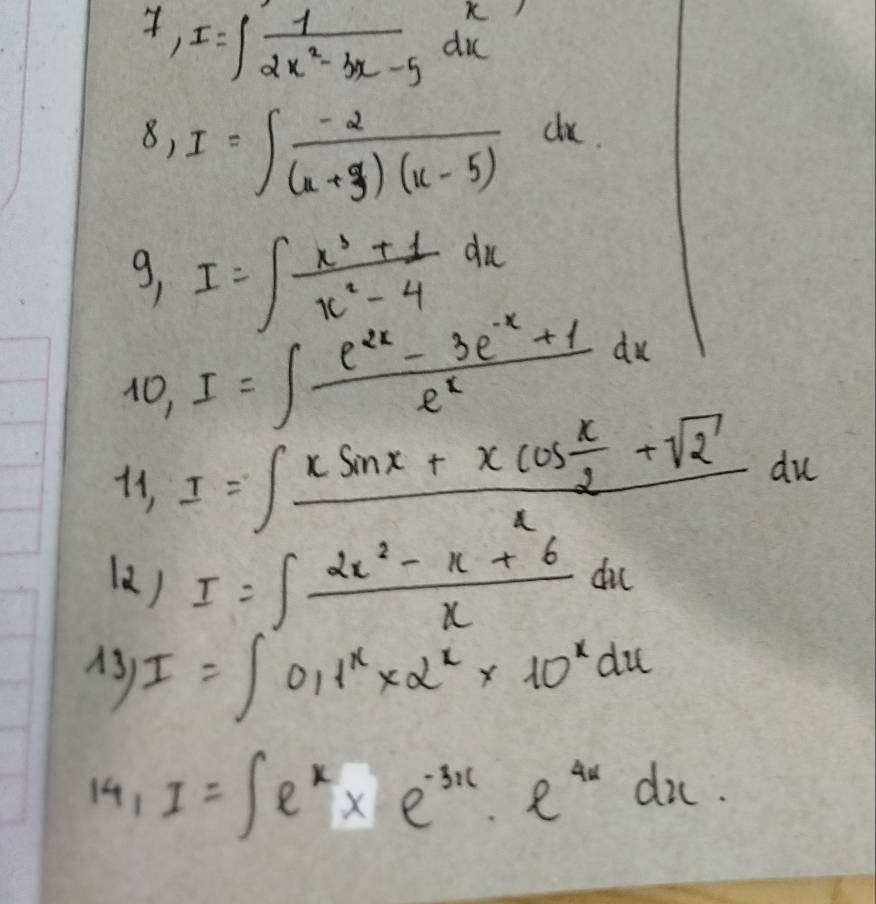 7, I = ∫ 1/(2x² - 3x - 5) dx
8, I = ∫ -2/((x + 3)(x - 5)) dx.
9, I = ∫ (x³ + 1)/(x² - 4) dx
10, I = ∫ (e^(2x) - 3e^(-x) + 1)/e^x dx
11, I = ∫ (x sin x + x cos x/2 + √2)/x dx
12, I = ∫ (2x² - x + 6)/x dx
13, I = ∫ 0,1^x × 2^x × 10^x dx
14, I = ∫ e^x × e^(-3x) . e^(4x) dx.